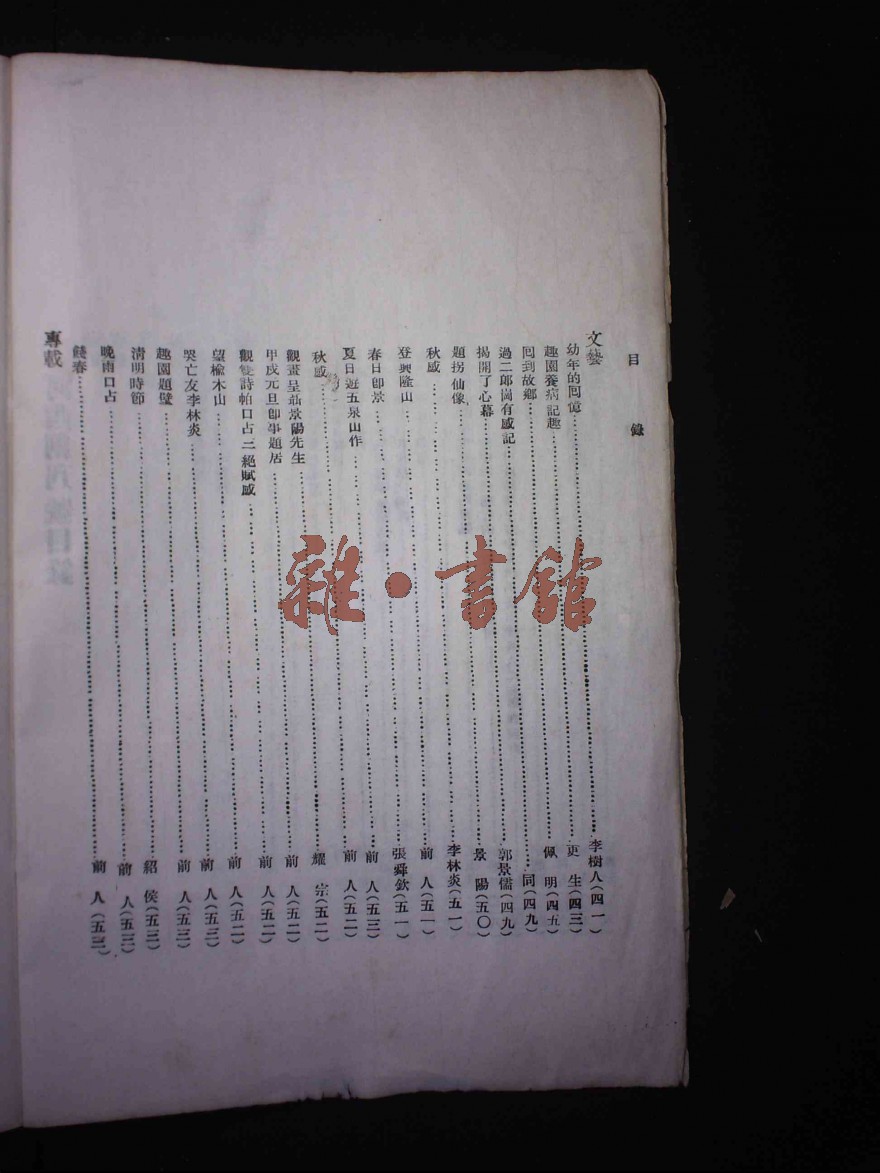 目 錄
文藝
幼年的囘憶……李樹人(四一)
趣園養病記趣……更 生(四三)
囘到故鄉……佩 明(四五)
過二郎崗有感記……同(四九)
揭開了心幕……郭景儒(四九)
題拐仙像……景 陽(五〇)
秋感……李林炎(五一)
登興隆山……前 人(五一)
春日卽景……張舜欽(五一)
夏日遊五泉山作……前 人(五三)
秋感……前 人(五二)
觀畫呈勗景陽先生……耀 宗(五二)
甲戌元旦卽事題居……前 人(五二)
觀雙詩帕口占二絕賦感……前 人(五二)
望榆木山……前 人(五二)
哭亡友李林炎……前 人(五三)
趣園題壁……前 人(五三)
淸明時節……紹 侯(五三)
晚雨口占……前 人(五三)
餞春……前 人(五三)
專載
雜·書館